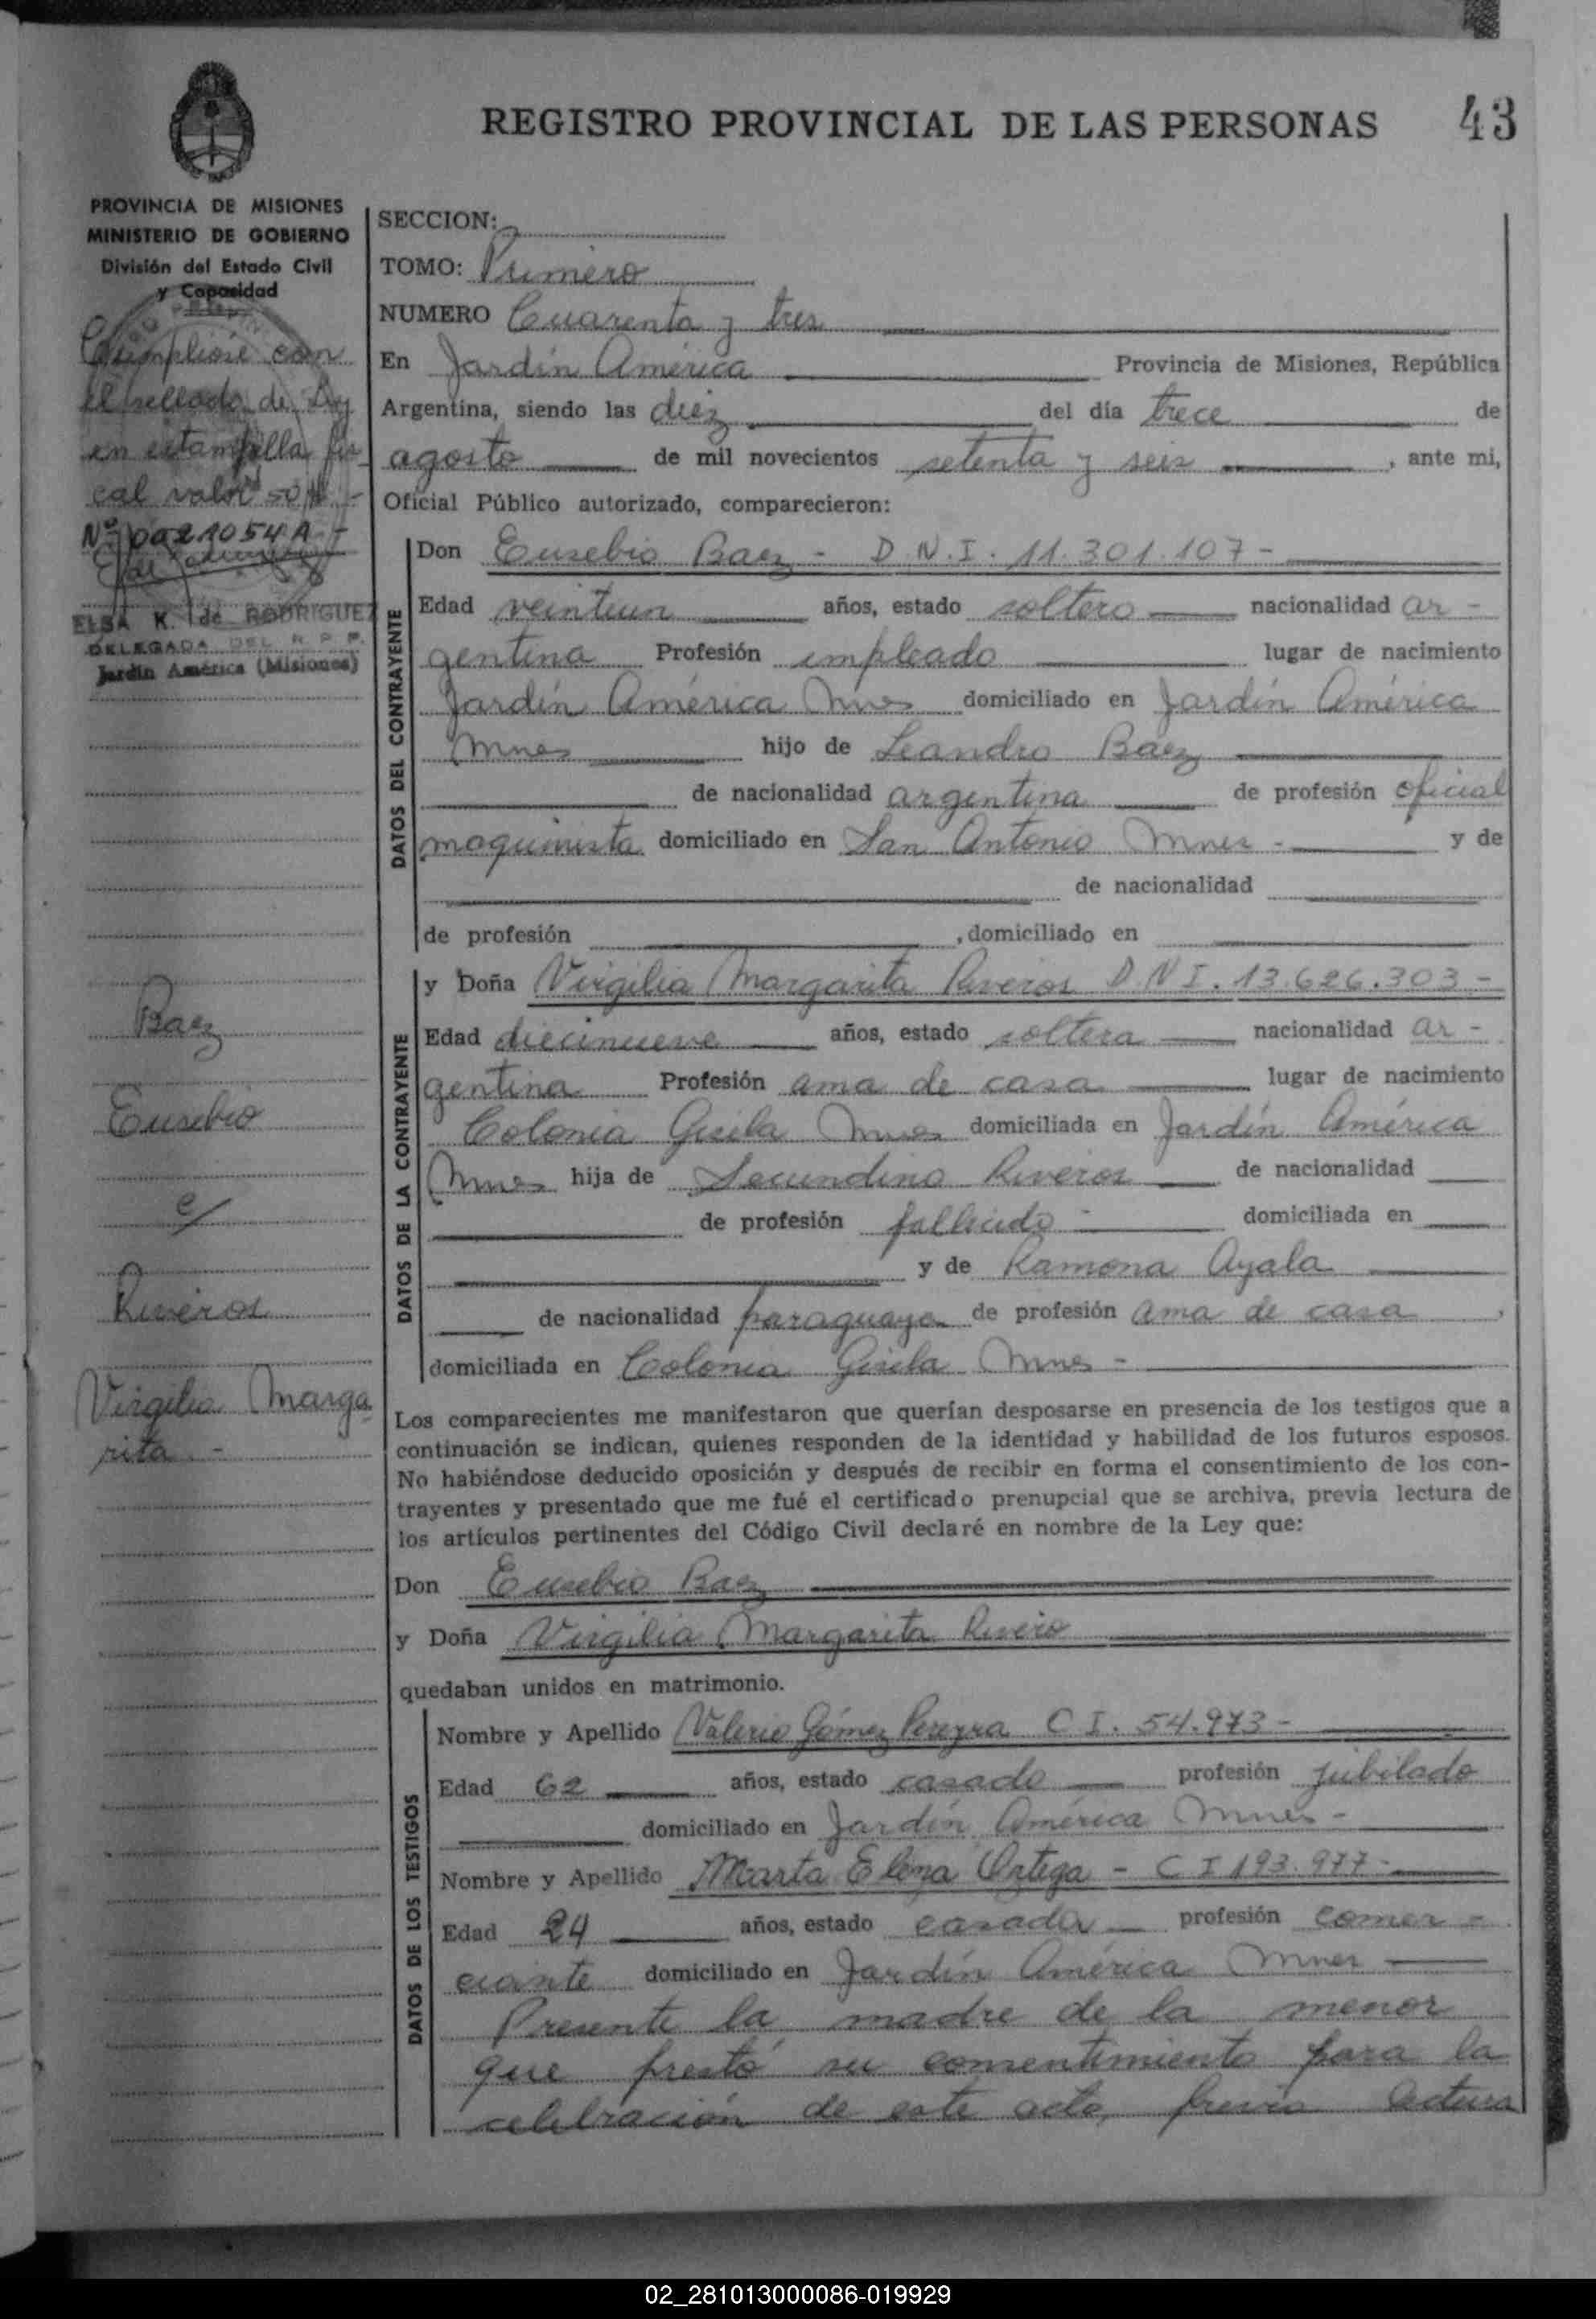 REGISTRO PROVINCIAL DE LAS PERSONAS 43
PROVINCIA DE MISIONES
MINISTERIO DE GOBIERNO
División del Estado Civil
y Capacidad
Cumpliose con
el sellado de Ley
en estampilla fis-
cal valor 50
Nº 0021054 A -
ELSA K. de RODRIGUEZ
DELEGADA DEL R. P. P.
Jardín América (Misiones)
Baez
Eusebio
c/
Riveros
Virgilia Marga
rita -
SECCION:
TOMO: Primero
NUMERO Cuarenta y tres
En Jardín América Provincia de Misiones, República
Argentina, siendo las diez del día trece de
agosto de mil novecientos setenta y seis, ante mi,
Oficial Público autorizado, comparecieron:
DATOS DEL CONTRAYENTE
Don Eusebio Baez - D.N.I. 11.301.107 -
Edad veintiun años, estado soltero nacionalidad ar -
gentina Profesión empleado lugar de nacimiento
Jardín América Mnes domiciliado en Jardín América
Mnes hijo de Leandro Baez
de nacionalidad argentina de profesión oficial
maquinista domiciliado en San Antonio Mnes - y de
de nacionalidad
de profesión , domiciliado en
DATOS DE LA CONTRAYENTE
y Doña Virgilia Margarita Riveros D.N.I. 13.626.303 -
Edad diecinueve años, estado soltera nacionalidad ar -
gentina Profesión ama de casa lugar de nacimiento
Colonia Gisela Mnes domiciliada en Jardín América
Mnes hija de Secundino Riveros de nacionalidad
de profesión fallecido - domiciliada en
y de Ramona Ayala
de nacionalidad paraguaya de profesión ama de casa ,
domiciliada en Colonia Gisela Mnes -
Los comparecientes me manifestaron que querían desposarse en presencia de los testigos que a
continuación se indican, quienes responden de la identidad y habilidad de los futuros esposos.
No habiéndose deducido oposición y después de recibir en forma el consentimiento de los con-
trayentes y presentado que me fué el certificado prenupcial que se archiva, previa lectura de
los artículos pertinentes del Código Civil declaré en nombre de la Ley que:
Don Eusebio Baez
y Doña Virgilia Margarita Rivero
quedaban unidos en matrimonio.
DATOS DE LOS TESTIGOS
Nombre y Apellido Valerio Gómez Pereyra C I. 54.973 -
Edad 62 años, estado casado profesión jubilado
domiciliado en Jardín América Mnes -
Nombre y Apellido Marta Elena Ortega - C I 193.977 -
Edad 24 años, estado casada profesión comer -
ciante domiciliado en Jardín América Mnes
Presente la madre de la menor
que prestó su consentimiento para la
celebración de este acto, previa lectura
02_281013000086-019929